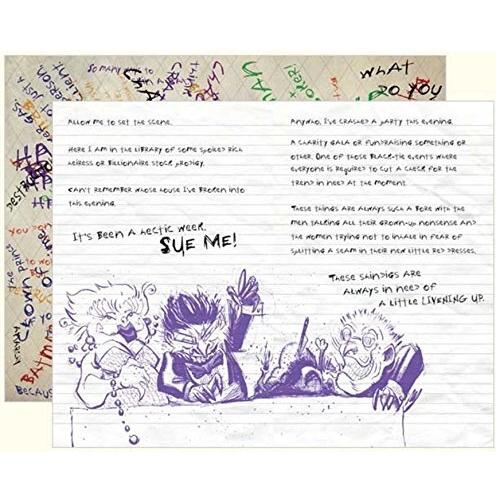 SO MANY WAYS TO
WHAT
DO YOU
CLIENT
PERSON.
JUST A
ALLOW ME TO SET THE SCENE.
HERE I AM IN THE LIBRARY OF SOME SPOILED RICH
HEIRESS OR BILLIONAIRE STOCK PRODIGY.
CAN'T REMEMBER WHOSE HOUSE I'VE BROKEN INTO
THIS EVENING.
IT'S BEEN A HECTIC WEEK.
SUE ME!
ANYWHO, I'VE CRASHED A PARTY THIS EVENING.
A CHARITY GALA OR FUNDRAISING SOMETHING OR
OTHER. ONE OF THOSE BLACK-TIE EVENTS WHERE
EVERYONE IS REQUIRED TO CUT A CHECK FOR THE
TREND IN NEED AT THE MOMENT.
THESE THINGS ARE ALWAYS SUCH A BORE WITH THE
MEN TALKING ALL THEIR GROWN-UP NONSENSE AND
THE WOMEN TRYING NOT TO INHALE IN FEAR OF
SPLITTING A SEAM IN THEIR NEW LITTLE RED DRESSES.
THESE SHINDIGS ARE
ALWAYS IN NEED OF
A LITTLE LIVENING UP.
THE
CROWN PRINCE
OF
BATMAN
BECAUS